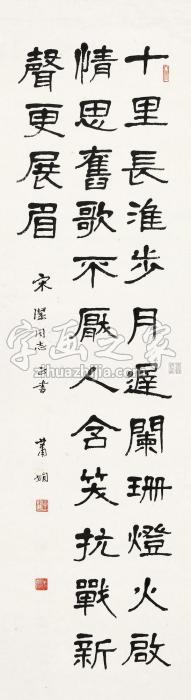 十里長淮步月遲闌珊燈火啟
情思舊歌不厭人含笑抗戰新
聲更展眉
宋 同志 書
蕭嫻
字画之家